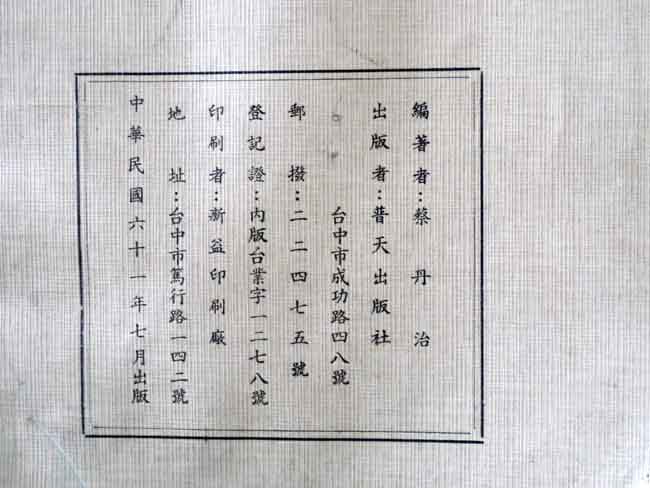 編著者：蔡丹治
出版者：普天出版社
台中市成功路四八號
郵撥：二二四七五號
登記證：內版台業字一二七八號
印刷者：新益印刷廠
地址：台中市篤行路一四二號
中華民國六十一年七月出版